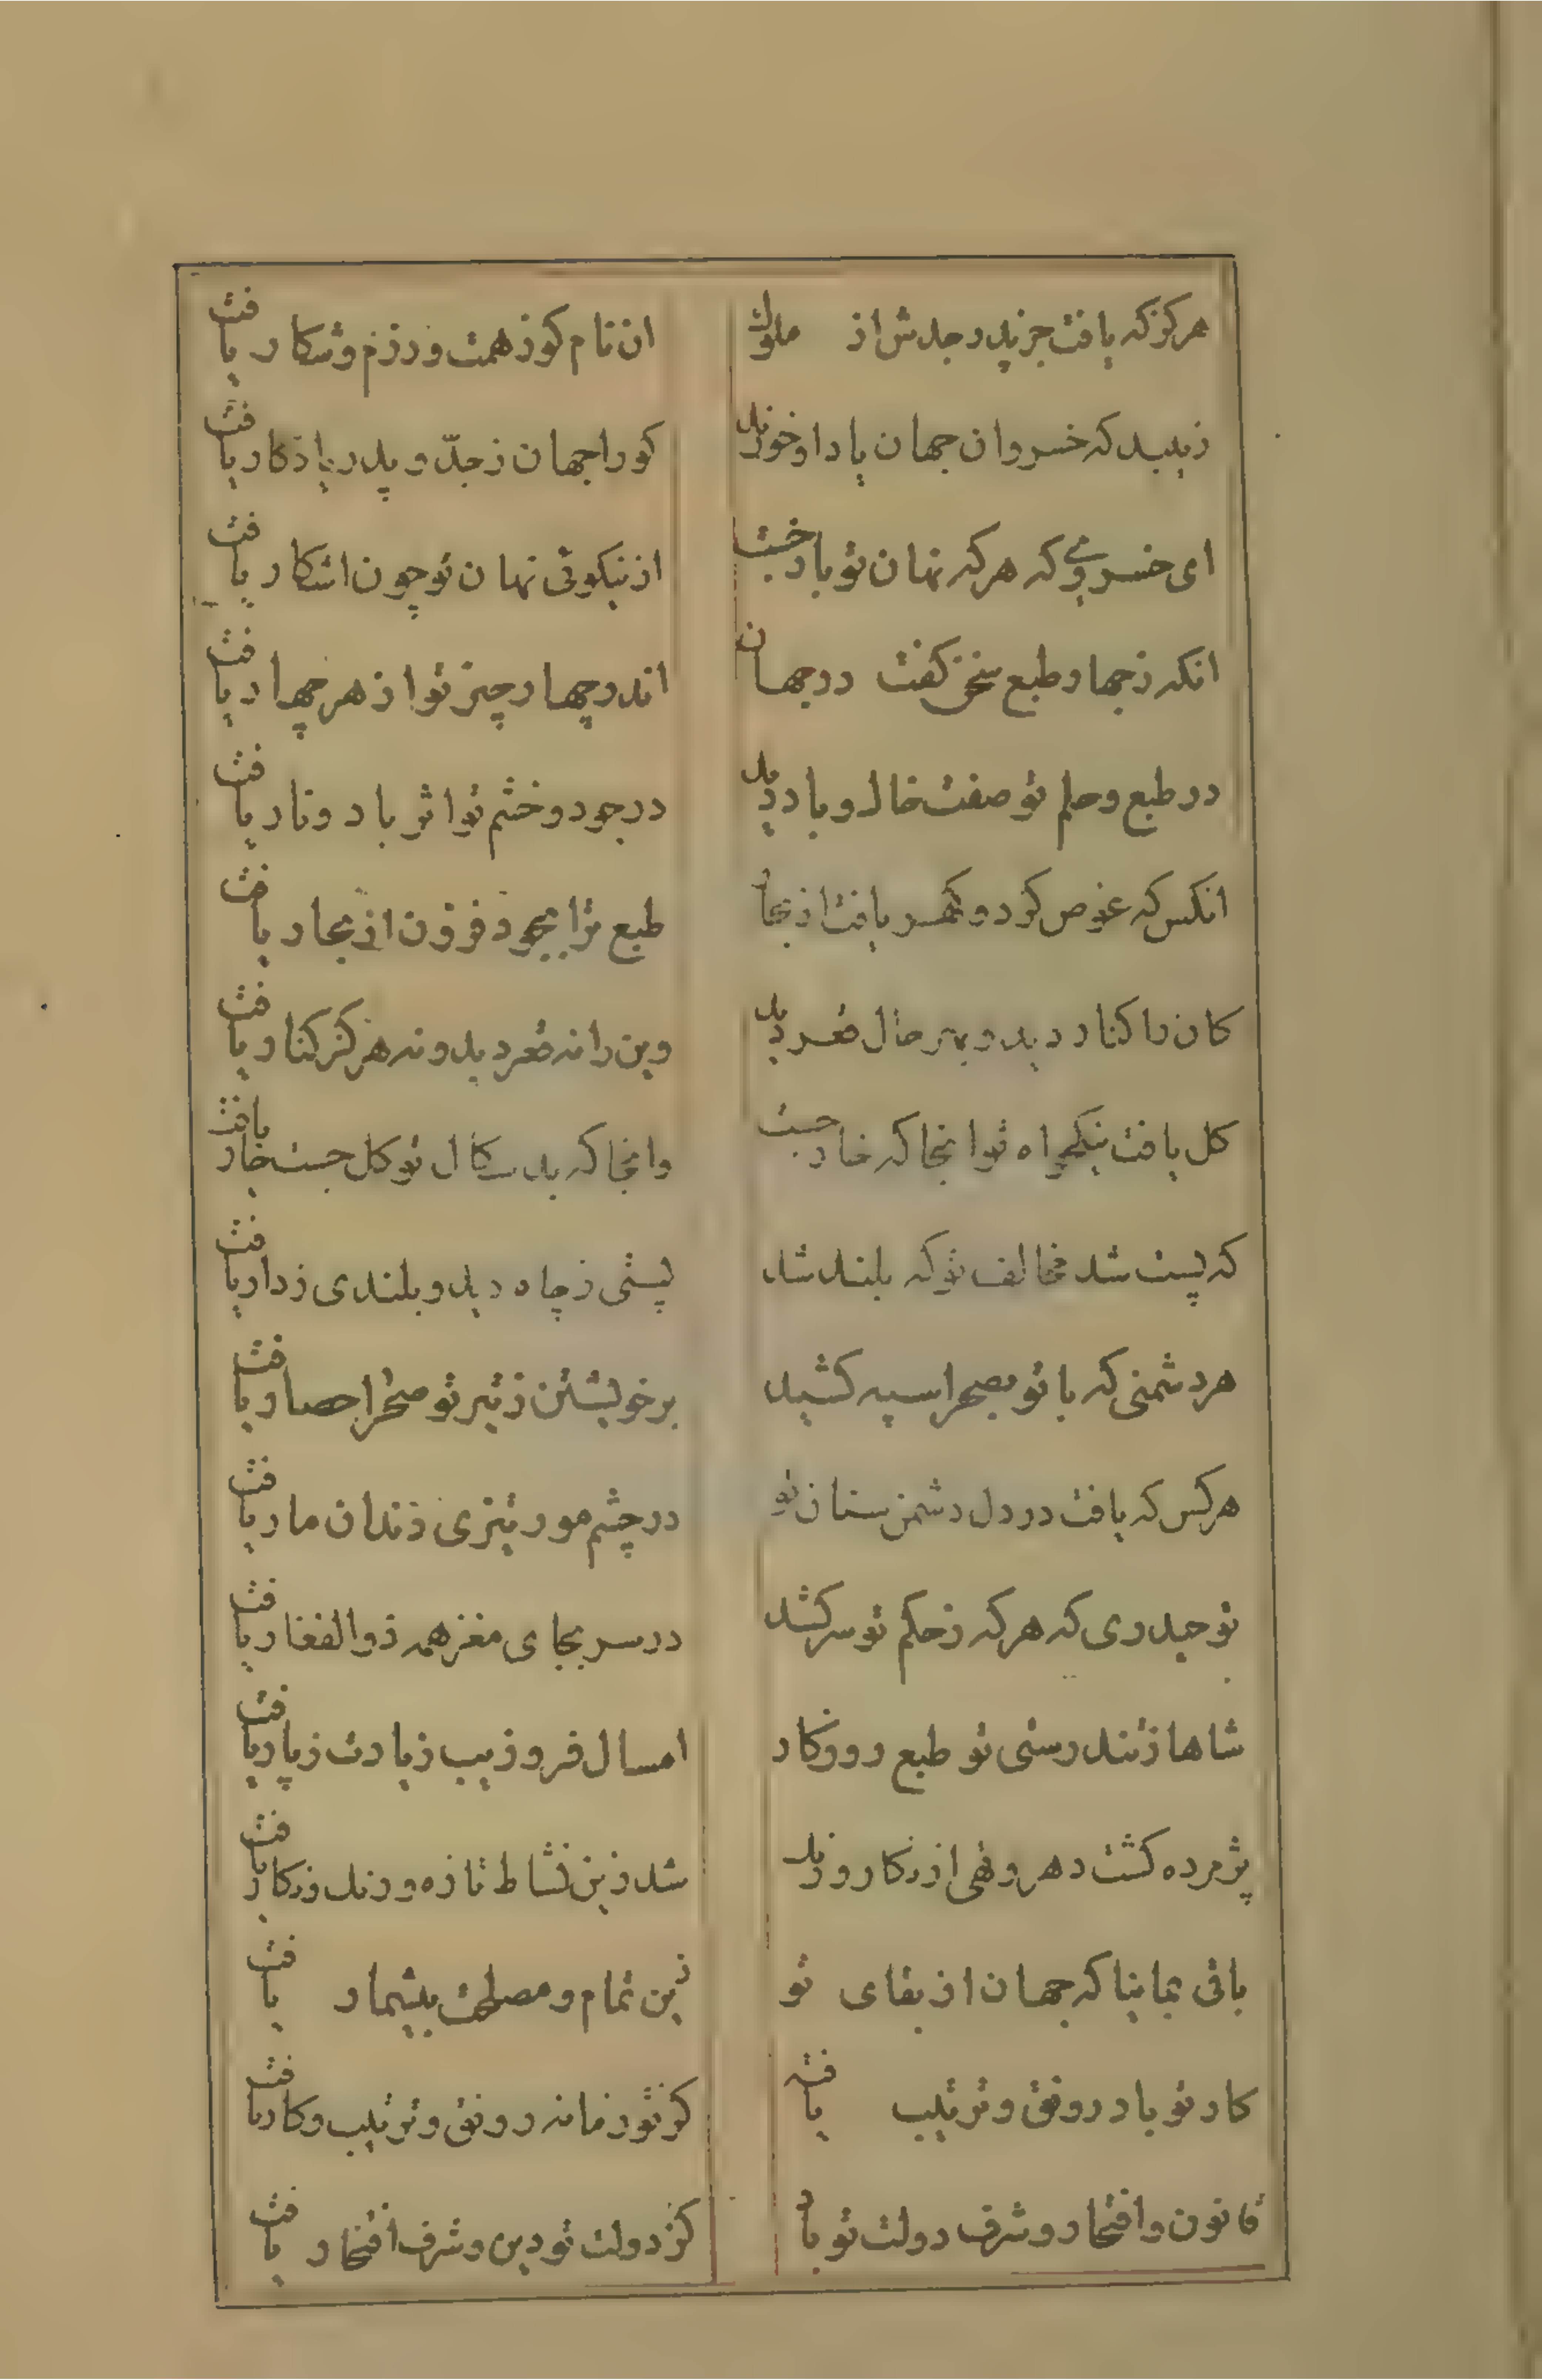 هرگز که یافت جز پدر و جدش از ملوک
ان نام کو ز همت و رزم و شکار یافت
زیبد که خسروان جهان یاد او خورند
کو را جهان ز جدّ و پدر یاذکار یافت
ای خسروی که هرکه نهان تو بازجست
از نیکوئی نهان تو چون اشکار یافت
انکه ز جهار طبع سخن کفت در جهان
اندر چهار چیز تو از هر چهار یافت
در طبع و حلم تو صفت خاک و باد دید
در جود و خشم تو اثر باد و نار یافت
انکس که غوص کرد و کهر یافت از بحار
طبع ترا بجود فزون از بحار یافت
کان را کنار دید و بهر حال قعر دید
وین را نه قعر دید و نه هرکز کنار یافت
کل یافت نیکخواه تو انجا که خار جست
وانجا که بد سکال تو کل جست خار یافت
که پست شد مخالف تو که بلند شد
پستی ز چاه دید و بلندی ز دار یافت
هر دشمنی که با تو بصحرا سپه کشید
بر خویشتن ز تیر تو صحرا حصار یافت
هرکس که یافت در دل دشمن سنان تو
در چشم مور تیزی دندان مار یافت
تو حیدری که هرکه ز حکم تو سر کشد
در سر بجای مغز همه ذوالفقار یافت
شاها ز تندرستی تو طبع روزکار
امسال فر و زیب زیادت ز پار یافت
پژمرده کشت دهر و تهی از نکار و رنک
شد زین نشاط تازه و رنک و نکار یافت
باقی بمانیا که جهان از بقای تو
زین تمام و مصلحت بیشمار یافت
کار تو باد رونق و ترتیب یافته
کز تو زمانه رونق و ترتیب و کار یافت
قانون و افتخار و شرف دولت تو باد
کز دولت تو دین و شرف افتخار یافت